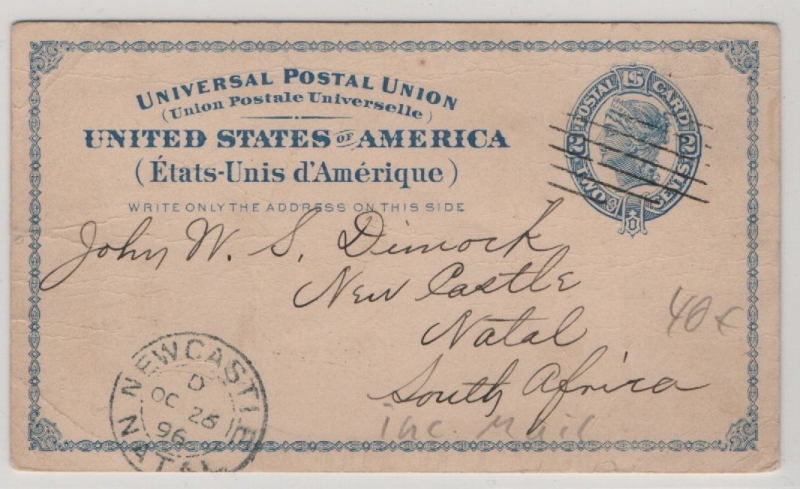 UNIVERSAL POSTAL UNION
(Union Postale Universelle)
UNITED STATES OF AMERICA
(États-Unis d'Amérique)
WRITE ONLY THE ADDRESS ON THIS SIDE
POSTAL CARD
2 TWO CENTS 2
John W. S. Dimock
New Castle
Natal
South Africa
40
inc. Mail
NEWCASTLE
D
OC 26
96
NATAL